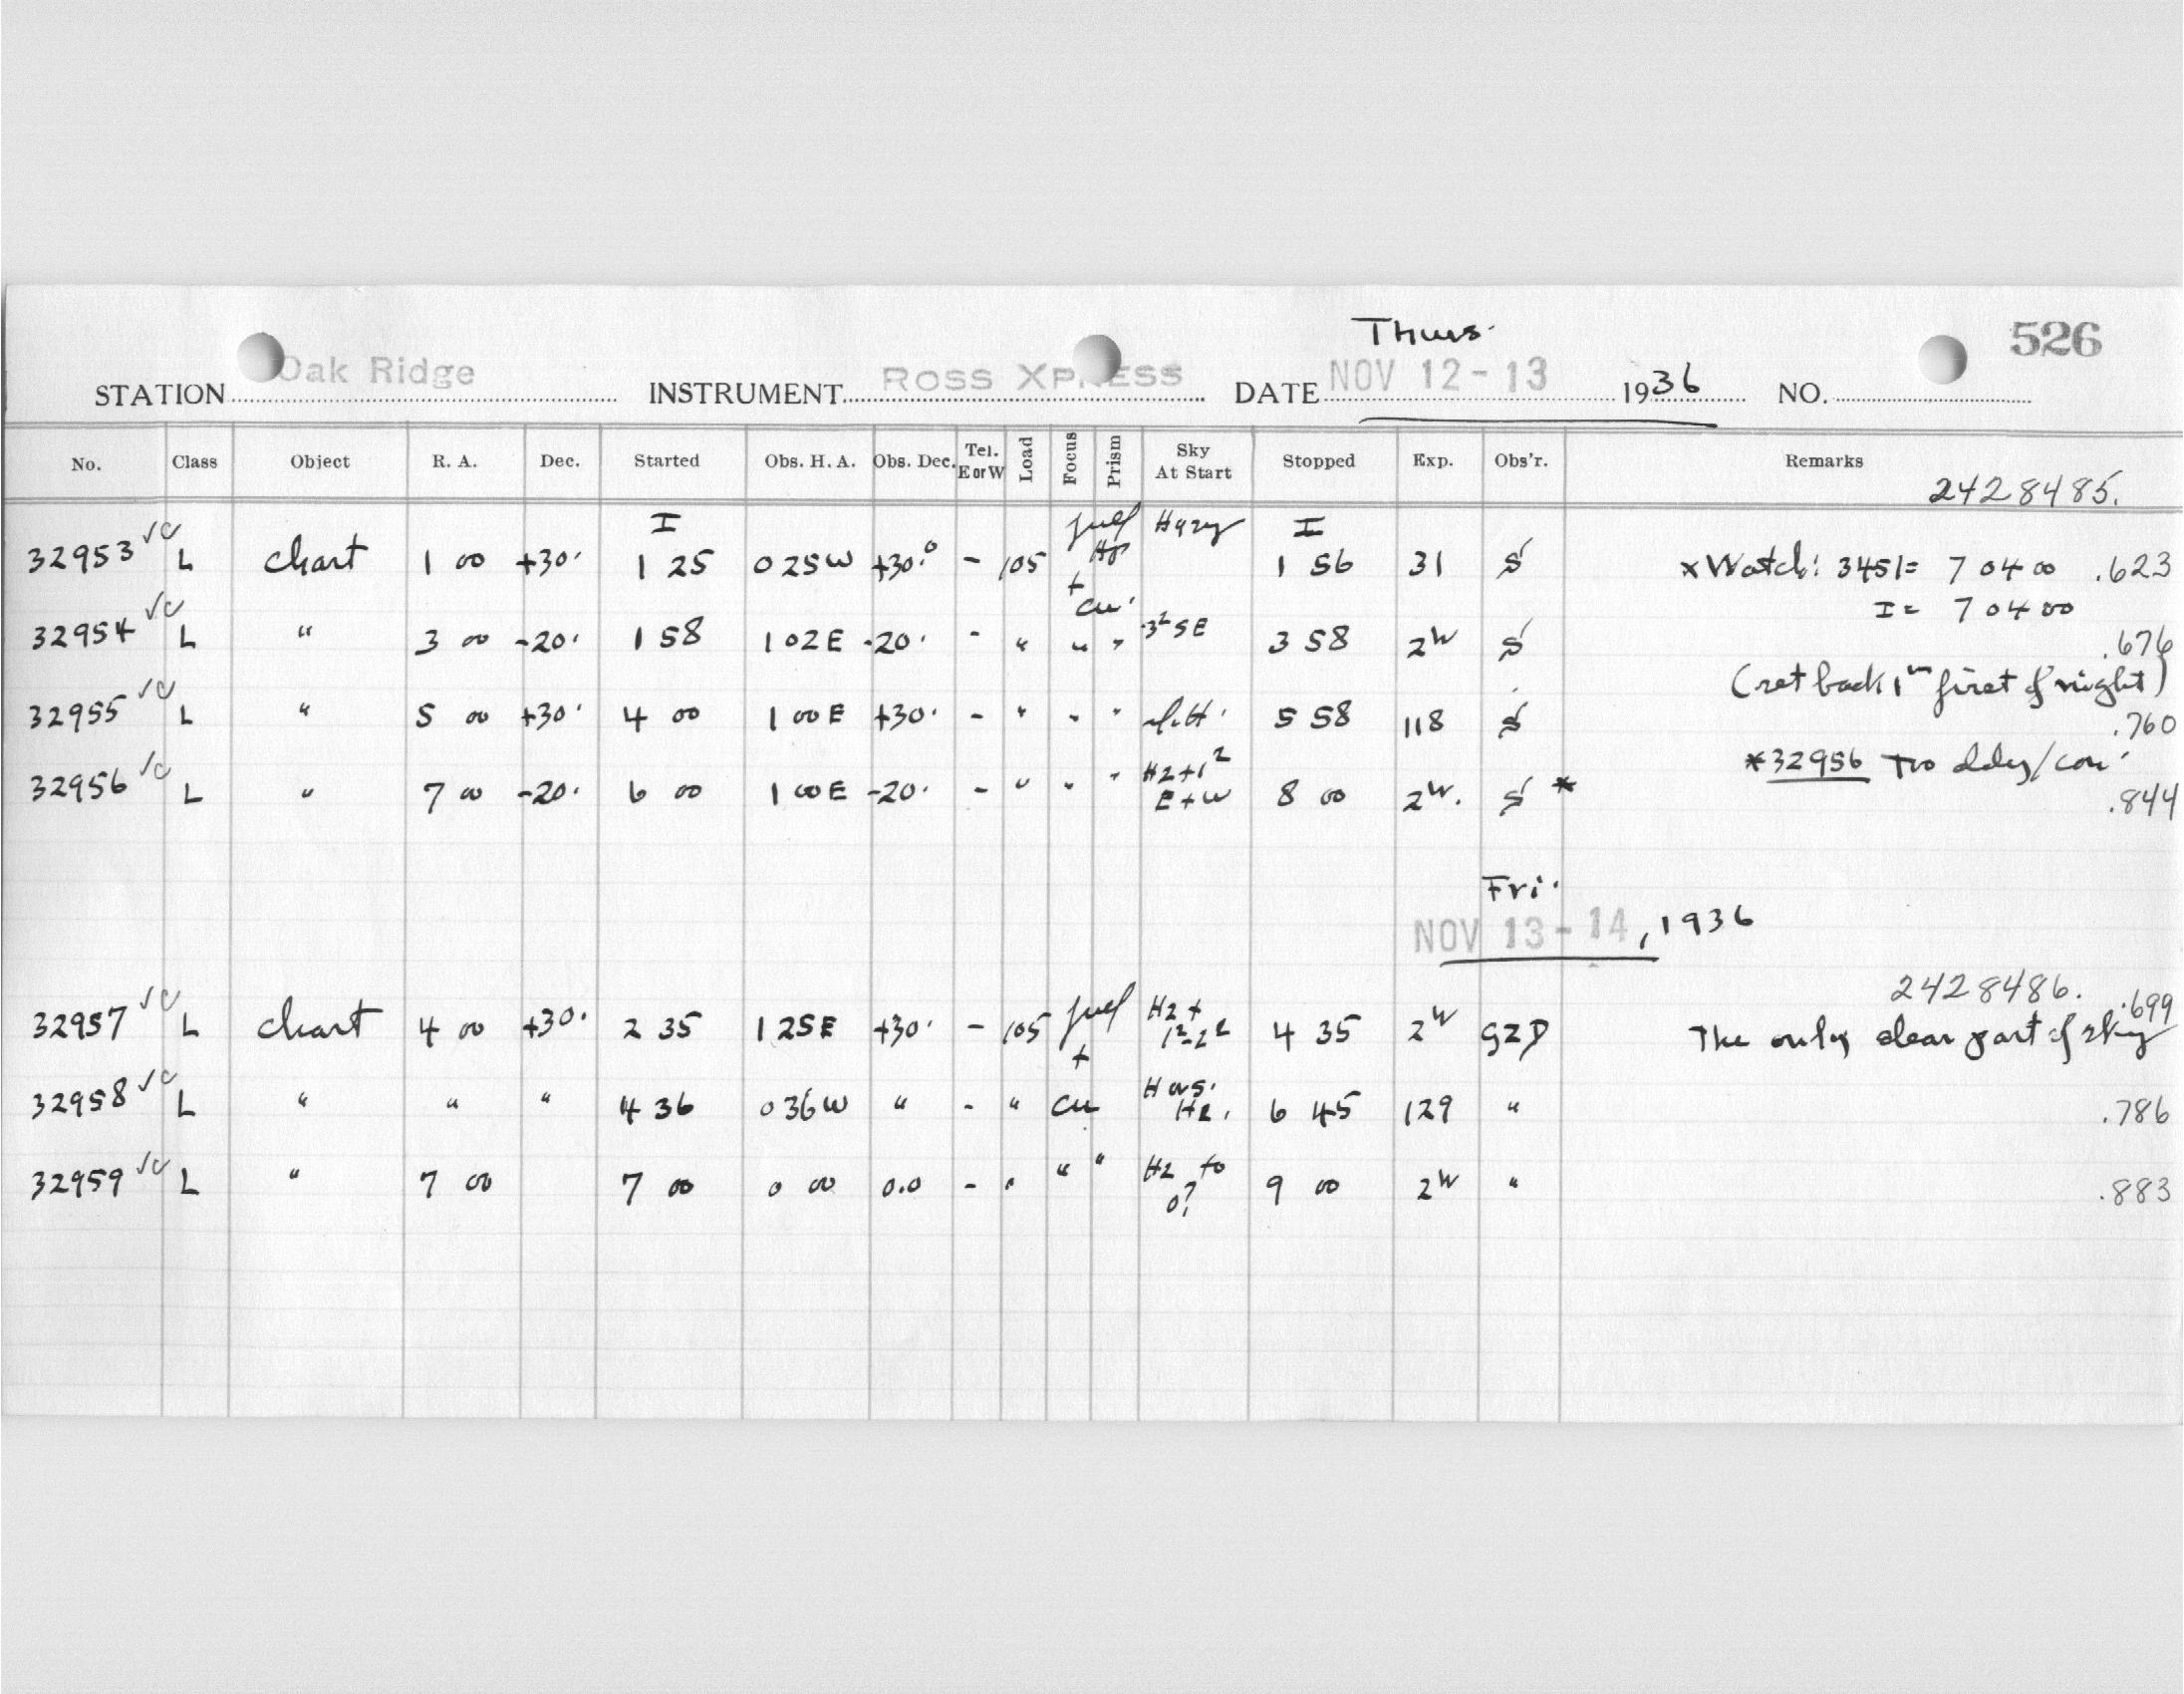 Thurs.
526
STATION Oak Ridge INSTRUMENT ROSS XPRESS DATE NOV 12-13 1936 NO.
No. Class Object R. A. Dec. Started Obs. H. A. Obs. Dec. Tel. E or W Load Focus Prism Sky At Start Stopped Exp. Obs'r. Remarks
2428485.
I Hazy I
32953 L chart 1 00 +30. 1 25 0 25W +30.° - 105 1 56 31 S x Watch: 3451= 7 04 00 .623
+ cu. I = 7 04 00
32954 L " 3 00 -20. 1 58 1 02E -20. - " " " 3² SE 3 58 2ʷ S .676
(set back 1ᵐ first of night)
32955 L " 5 00 +30. 4 00 1 00E +30. - " " " 5 58 118 S .760
*32956 Two
32956 L " 7 00 -20. 6 00 1 00E -20. - " " " Hz+1² E+W 8 00 2ʷ. S * .844
Fri.
NOV 13-14, 1936
2428486.
32957 L chart 4 00 +30. 2 35 1 25E +30. - 105 + Hz + 1²-2² 4 35 2ʷ GZD The only clear part of sky .699
32958 L " " " 4 36 0 36W " - " cu Hz. 6 45 129 " .786
32959 L " 7 00 7 00 0 00 0.0 - " " " Hz to 0? 9 00 2ʷ " .883